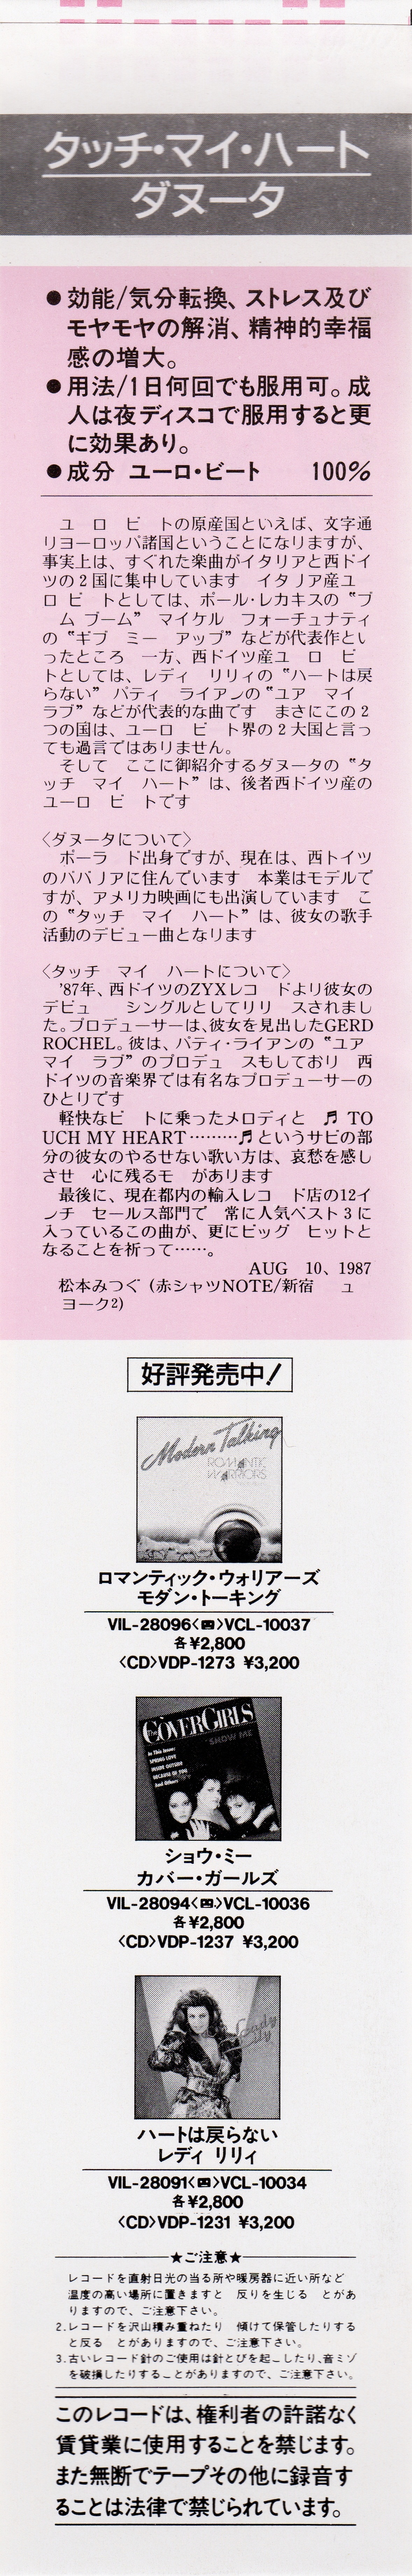 タッチ・マイ・ハート
ダヌータ
●効能/気分転換、ストレス及び
モヤモヤの解消、精神的幸福
感の増大。
●用法/1日何回でも服用可。成
人は夜ディスコで服用すると更
に効果あり。
●成分 ユーロ・ビート 100%
ユ ロ ビ トの原産国といえば、文字通
りヨーロッパ諸国ということになりますが、
事実上は、すぐれた楽曲がイタリアと西ドイ
ツの2国に集中しています イタリア産ユ
ロ ビ トとしては、ポール・レカキスの〝ブ
ム ブーム〟 マイケル フォーチュナティ
の〝ギブ ミー アップ〟などが代表作とい
ったところ 一方、西ドイツ産ユ ロ ビ
トとしては、レディ リリィの〝ハートは戻
らない〟 パティ ライアンの〝ユア マイ
ラブ〟などが代表的な曲です まさにこの2
つの国は、ユーロ ビ ト界の2大国と言っ
ても過言ではありません。
そして ここに御紹介するダヌータの〝タ
ッチ マイ ハート〟は、後者西ドイツ産の
ユーロ ビ トです
〈ダヌータについて〉
ポーラ ド出身ですが、現在は、西トイツ
のババリアに住んでいます 本業はモデルで
すが、アメリカ映画にも出演しています こ
の〝タッチ マイ ハート〟は、彼女の歌手
活動のデビュー曲となります
〈タッチ マイ ハートについて〉
'87年、西ドイツのZYXレコ ドより彼女の
デビュ シングルとしてリリ スされまし
た。プロデューサーは、彼女を見出したGERD
ROCHEL。彼は、パティ・ライアンの〝ユア
マイ ラブ〟のプロデュ スもしており 西
ドイツの音楽界では有名なプロデューサーの
ひとりです
軽快なビ トに乗ったメロディと ♬ TO
UCH MY HEART………♬というサビの部
分の彼女のやるせない歌い方は、哀愁を感し
させ 心に残るモ があります
最後に、現在都内の輸入レコ ド店の12イ
ンチ セールス部門で 常に人気ベスト3に
入っているこの曲が、更にビッグ ヒットと
なることを祈って……。
AUG 10、1987
松本みつぐ (赤シャツNOTE/新宿 ュ
ヨーク2)
好評発売中!
Modern Talking
ROMANTIC
WARRIORS
ロマンティック・ウォリアーズ
モダン・トーキング
VIL-28096〈📼〉VCL-10037
各¥2,800
〈CD〉VDP-1273 ¥3,200
The COVER GIRLS
SHOW ME
In This Issue:
SPRING LOVE
INSIDE OUTSIDE
BECAUSE OF YOU
And Others
ショウ・ミー
カバー・ガールズ
VIL-28094〈📼〉VCL-10036
各¥2,800
〈CD〉VDP-1237 ¥3,200
Lady Lily
ハートは戻らない
レディ リリィ
VIL-28091〈📼〉VCL-10034
各¥2,800
〈CD〉VDP-1231 ¥3,200
★ご注意★
レコードを直射日光の当る所や暖房器に近い所など
温度の高い場所に置きますと 反りを生じる とがあ
りますので、ご注意下さい。
2.レコードを沢山積み重ねたり 傾けて保管したりする
と反る とがありますので、ご注意下さい。
3.古いレコード針のご使用は針とびを起こしたり、音ミゾ
を破損したりすることがありますので、ご注意下さい。
このレコードは、権利者の許諾なく
賃貸業に使用することを禁じます。
また無断でテープその他に録音す
ることは法律で禁じられています。